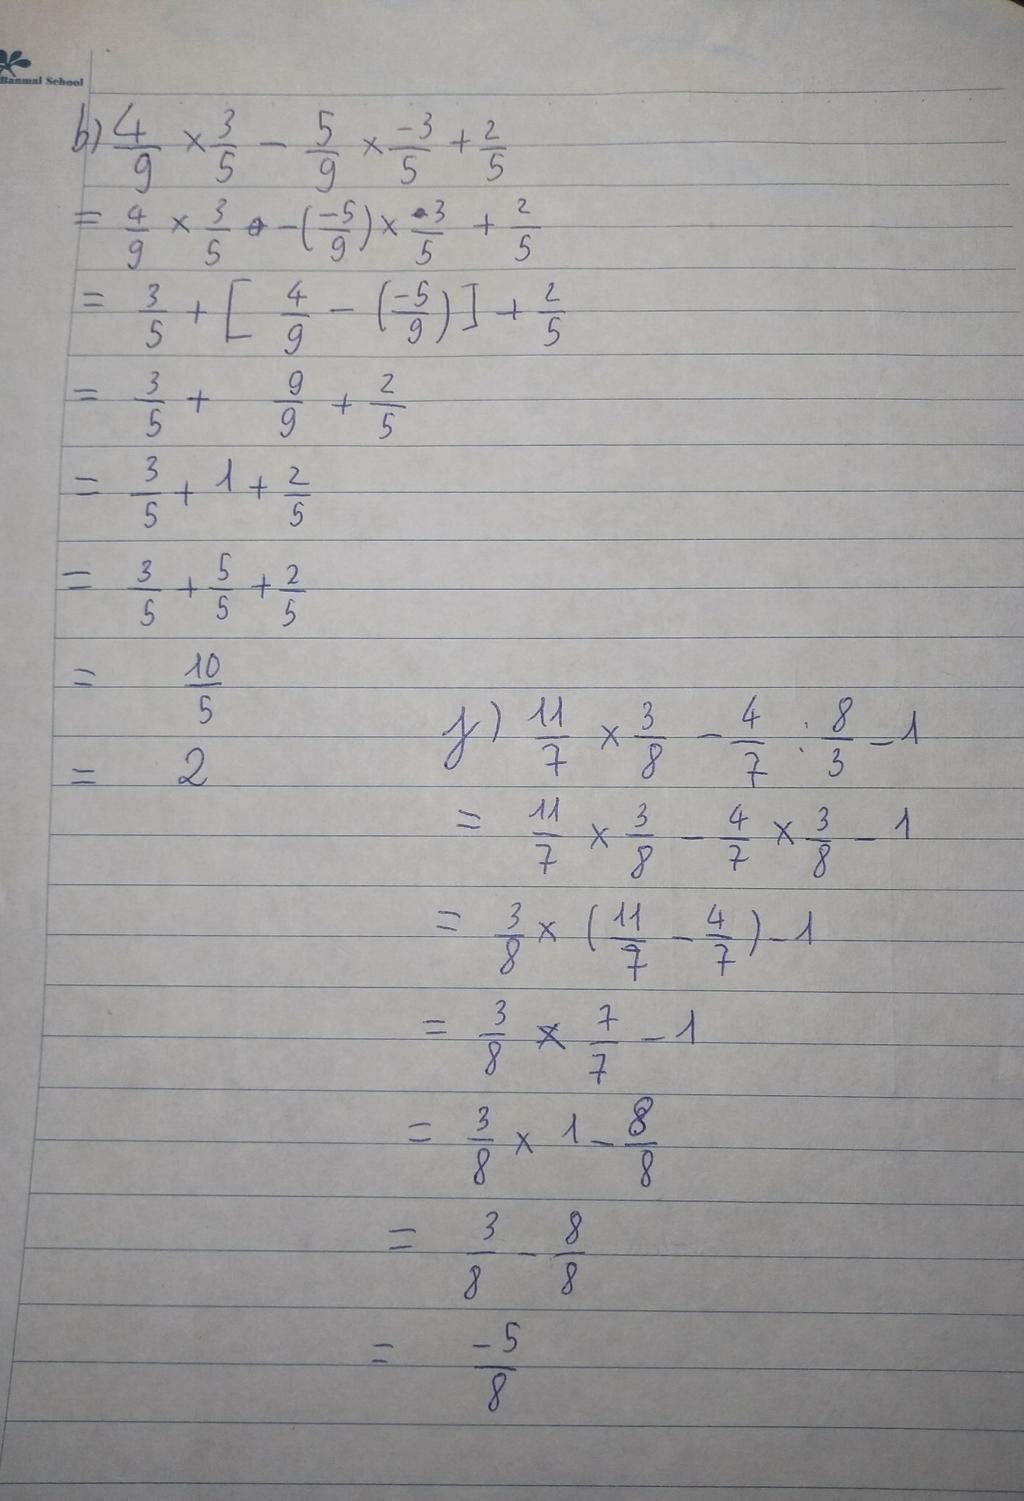 Banmai School
b) 4/9 × 3/5 - 5/9 × -3/5 + 2/5
= 4/9 × 3/5 - (-5/9) × 3/5 + 2/5
= 3/5 + [ 4/9 - (-5/9) ] + 2/5
= 3/5 + 9/9 + 2/5
= 3/5 + 1 + 2/5
= 3/5 + 5/5 + 2/5
= 10/5
= 2
j) 11/7 × 3/8 - 4/7 : 8/3 - 1
= 11/7 × 3/8 - 4/7 × 3/8 - 1
= 3/8 × (11/7 - 4/7) - 1
= 3/8 × 7/7 - 1
= 3/8 × 1 - 8/8
= 3/8 - 8/8
= -5/8